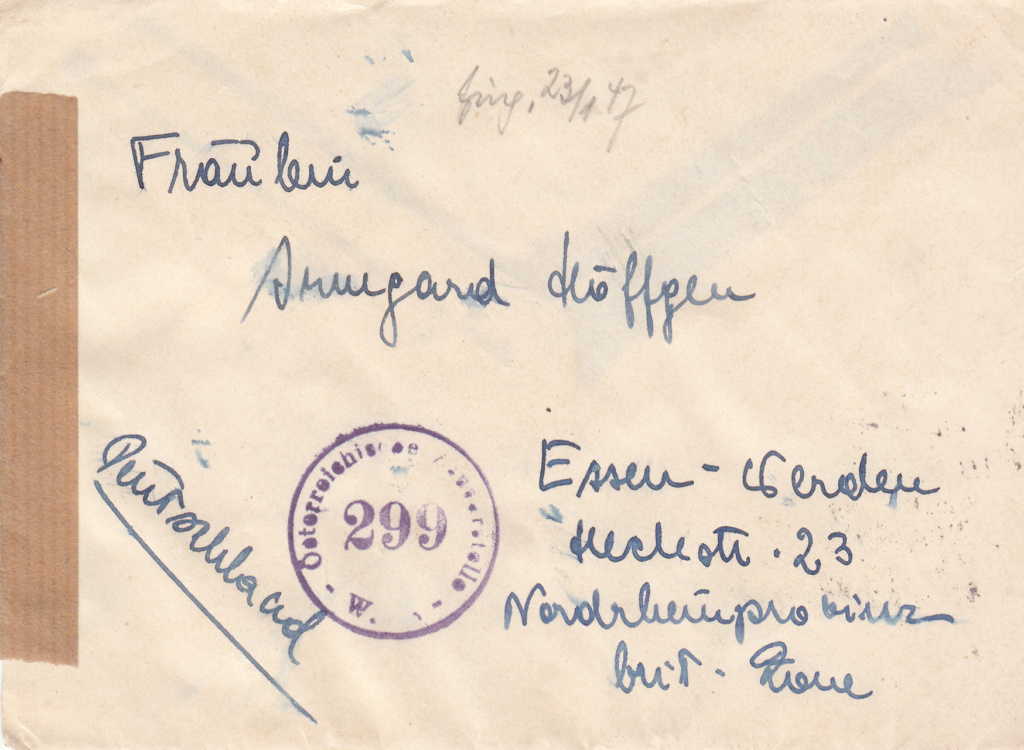 Eing. 23/1 47
Fräulein
Armgard Höffgen
Deutschland
Österreichische Zensurstelle
299
W.
Essen - Werden
Heckstr. 23
Nordrheinprovinz
brit. Zone